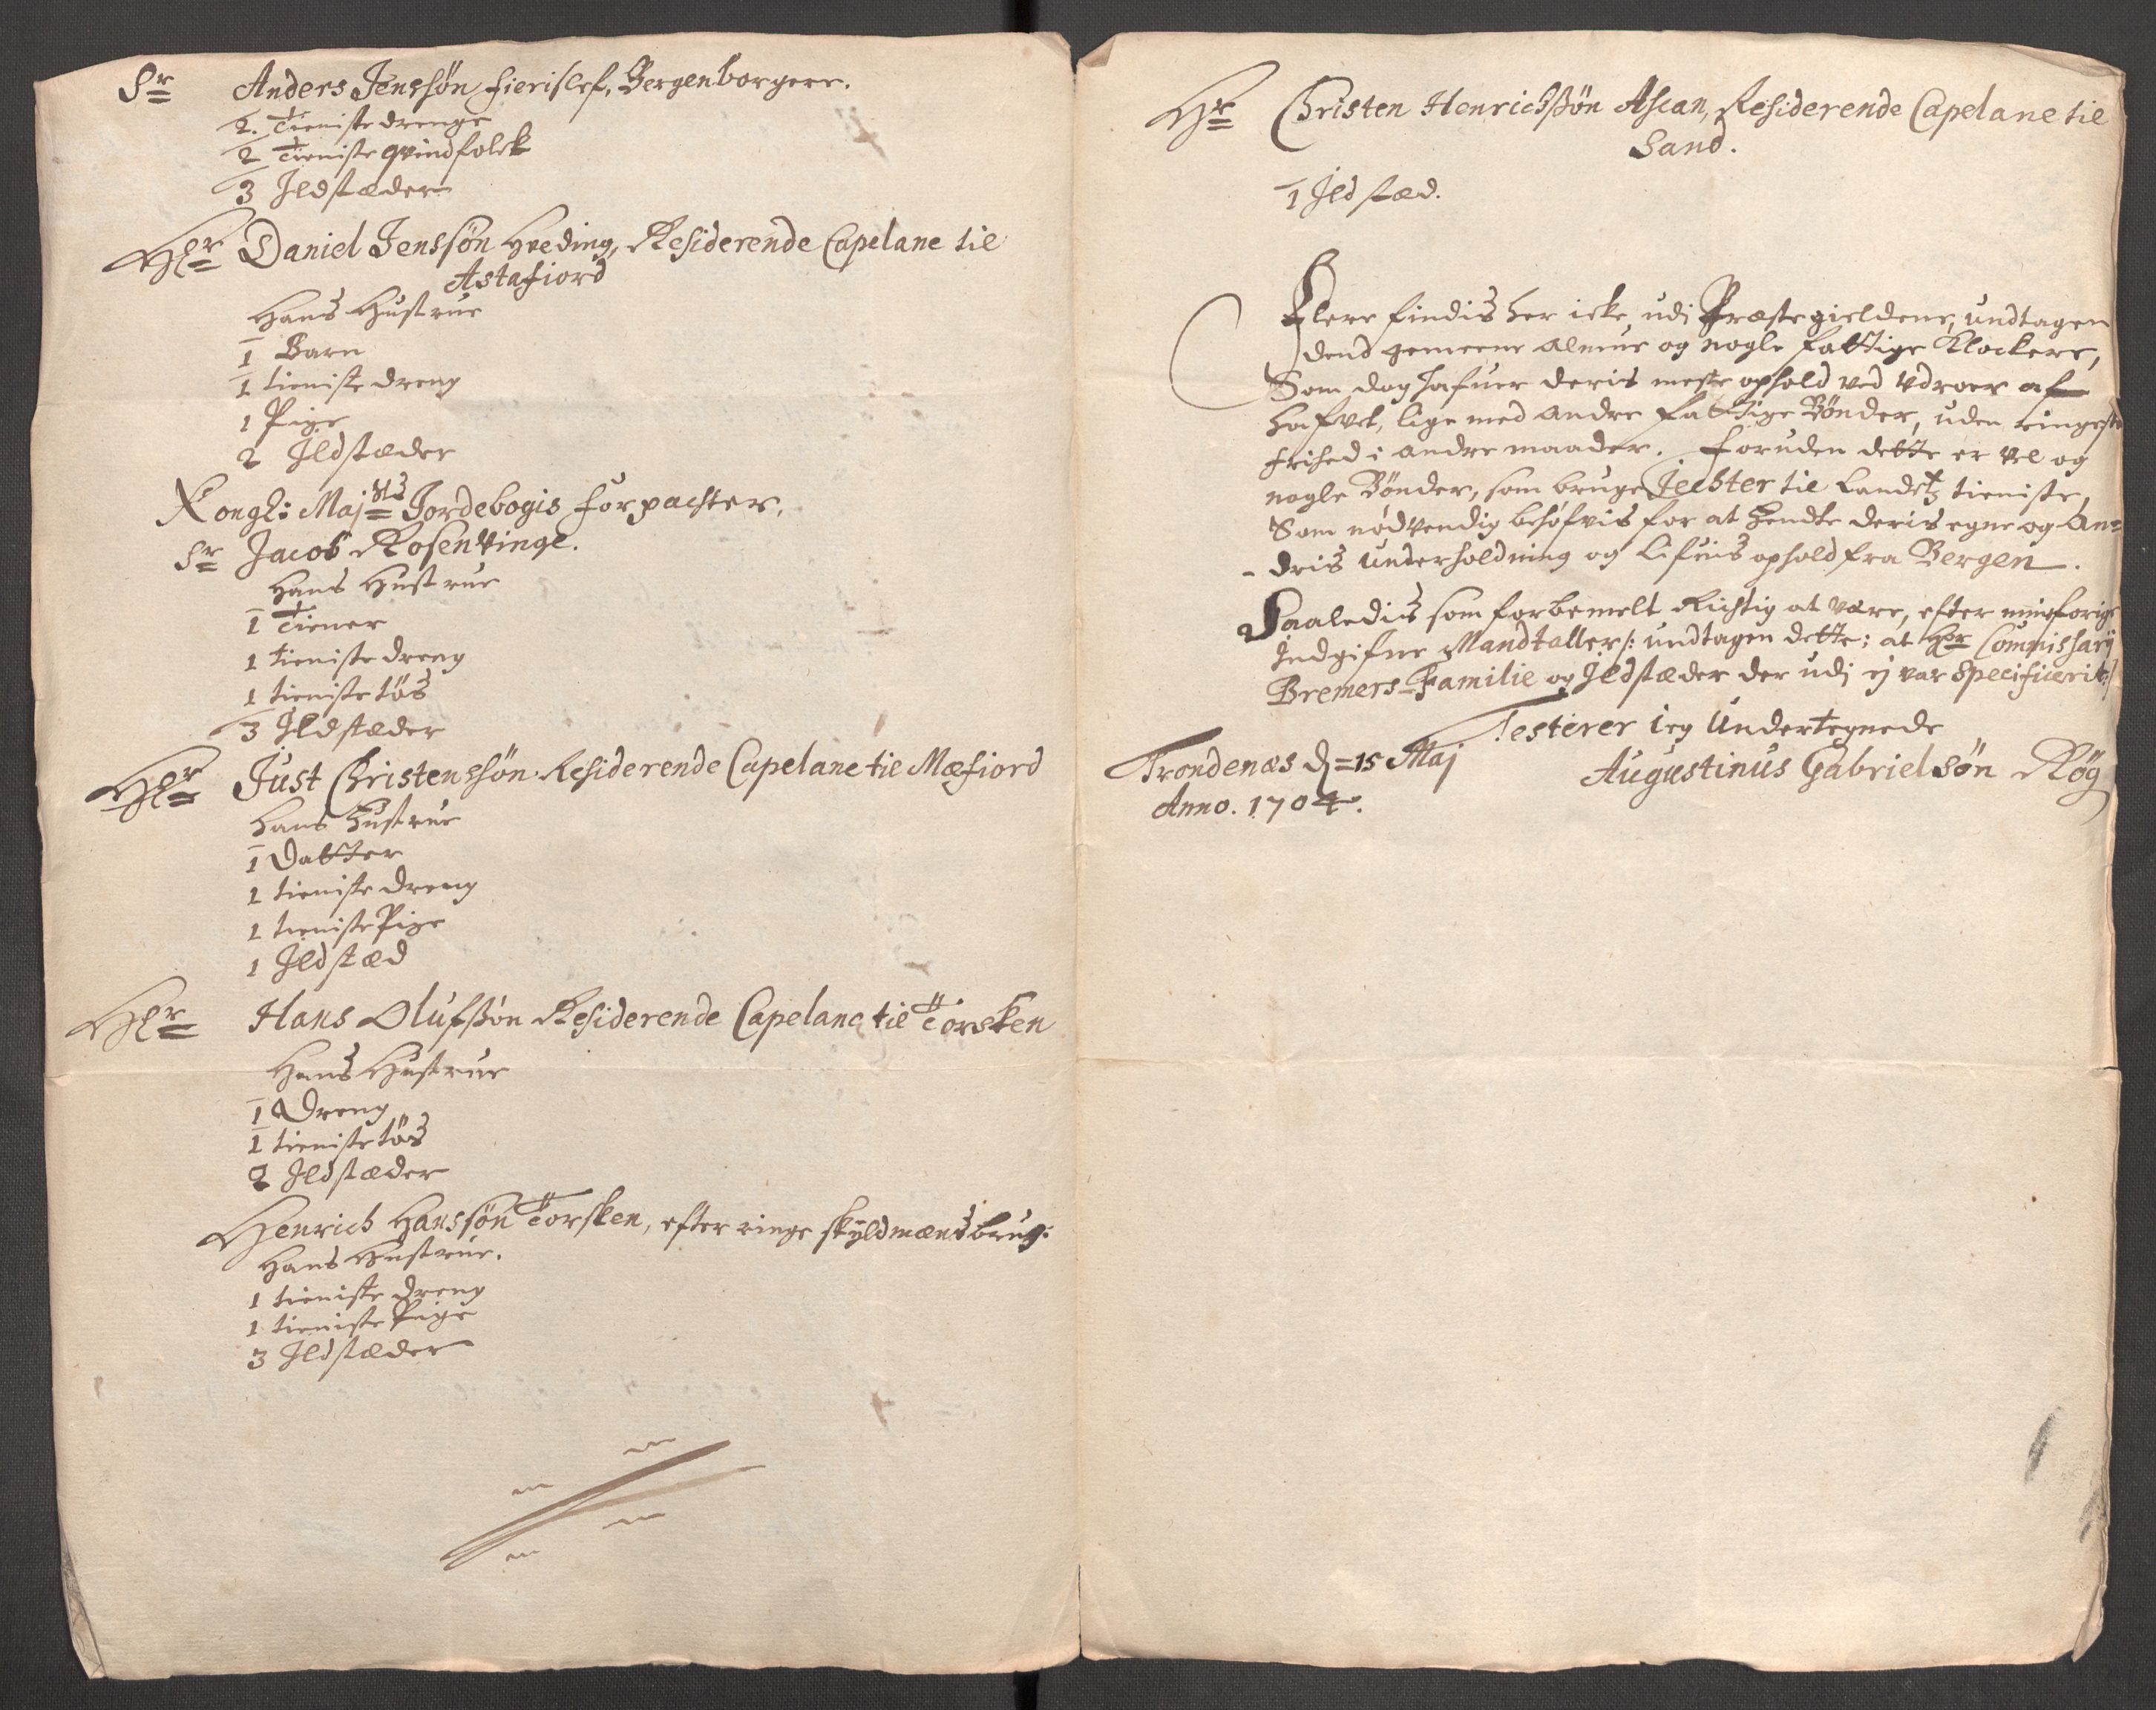 Sr Anders Jenssøn Fierislef, Bergenborgere.
2. Tieniste drenge
2 Tieniste qvindfolck
3 Ildstæder
Hr Daniel Jenssøn Hveding, Residerende Capelane til
Astafiord
Hans Hustrue
1 Barn
1 tieniste dreng
1 Pige
2 Ildstæder
Kongl: Majsts Jordebogis forpachter,
Sr Jacob Rosenvinge.
Hans Hustrue
1 Tiener
1 tieniste dreng
1 tieniste tøs
3 Ildstæder
Hr Just Christenssøn Residerende Capelane til Mefiord
Hans Hustrue
1 Datter
1 tieniste dreng
1 tieniste Pige
1 Ildstæd
Hr Hans Olufssøn Residerende Capelane til Torsken
Hans Hustrue
1 Dreng
1 tieniste tøs
2 Ildstæder
Henrich Hanssøn Torsken, efter ringe skyldmænds brug.
Hans Hustrue.
1 tieniste dreng
1 tieniste Pige
3 Ildstæder
Hr Christen Henrichssøn Ascan, Residerende Capelane til
Sand.
1 Ildstæd.
Flere findis her icke, udi Præstegieldene, undtagen
dend gemeene almue og nogle fattige Klockere,
Som dog hafuer deris meste ophold ved Vdroer af
hafvet, lige med andre fattige Bønder, uden ringeste
frihed i andre maader. Foruden dette er vel og
nogle Bønder, som bruge Jechter til Landetz tieniste,
Som nødvendig behøfvis for at hendte deris egne og An=
-dris underholdning og Lifuis ophold fra Bergen.
Saaledis som forbemelt Richtig at være, efter min forige
Indgifne Mandtaller /: undtagen dette; at Hr Commissarij
Bremers Familie og Ildstæder der udj ej var Specificerit:/
Testerer ieg Undertegnede
Trondenæs d=15 Maj
Anno. 1704.
Augustinus Gabrielsøn Røg